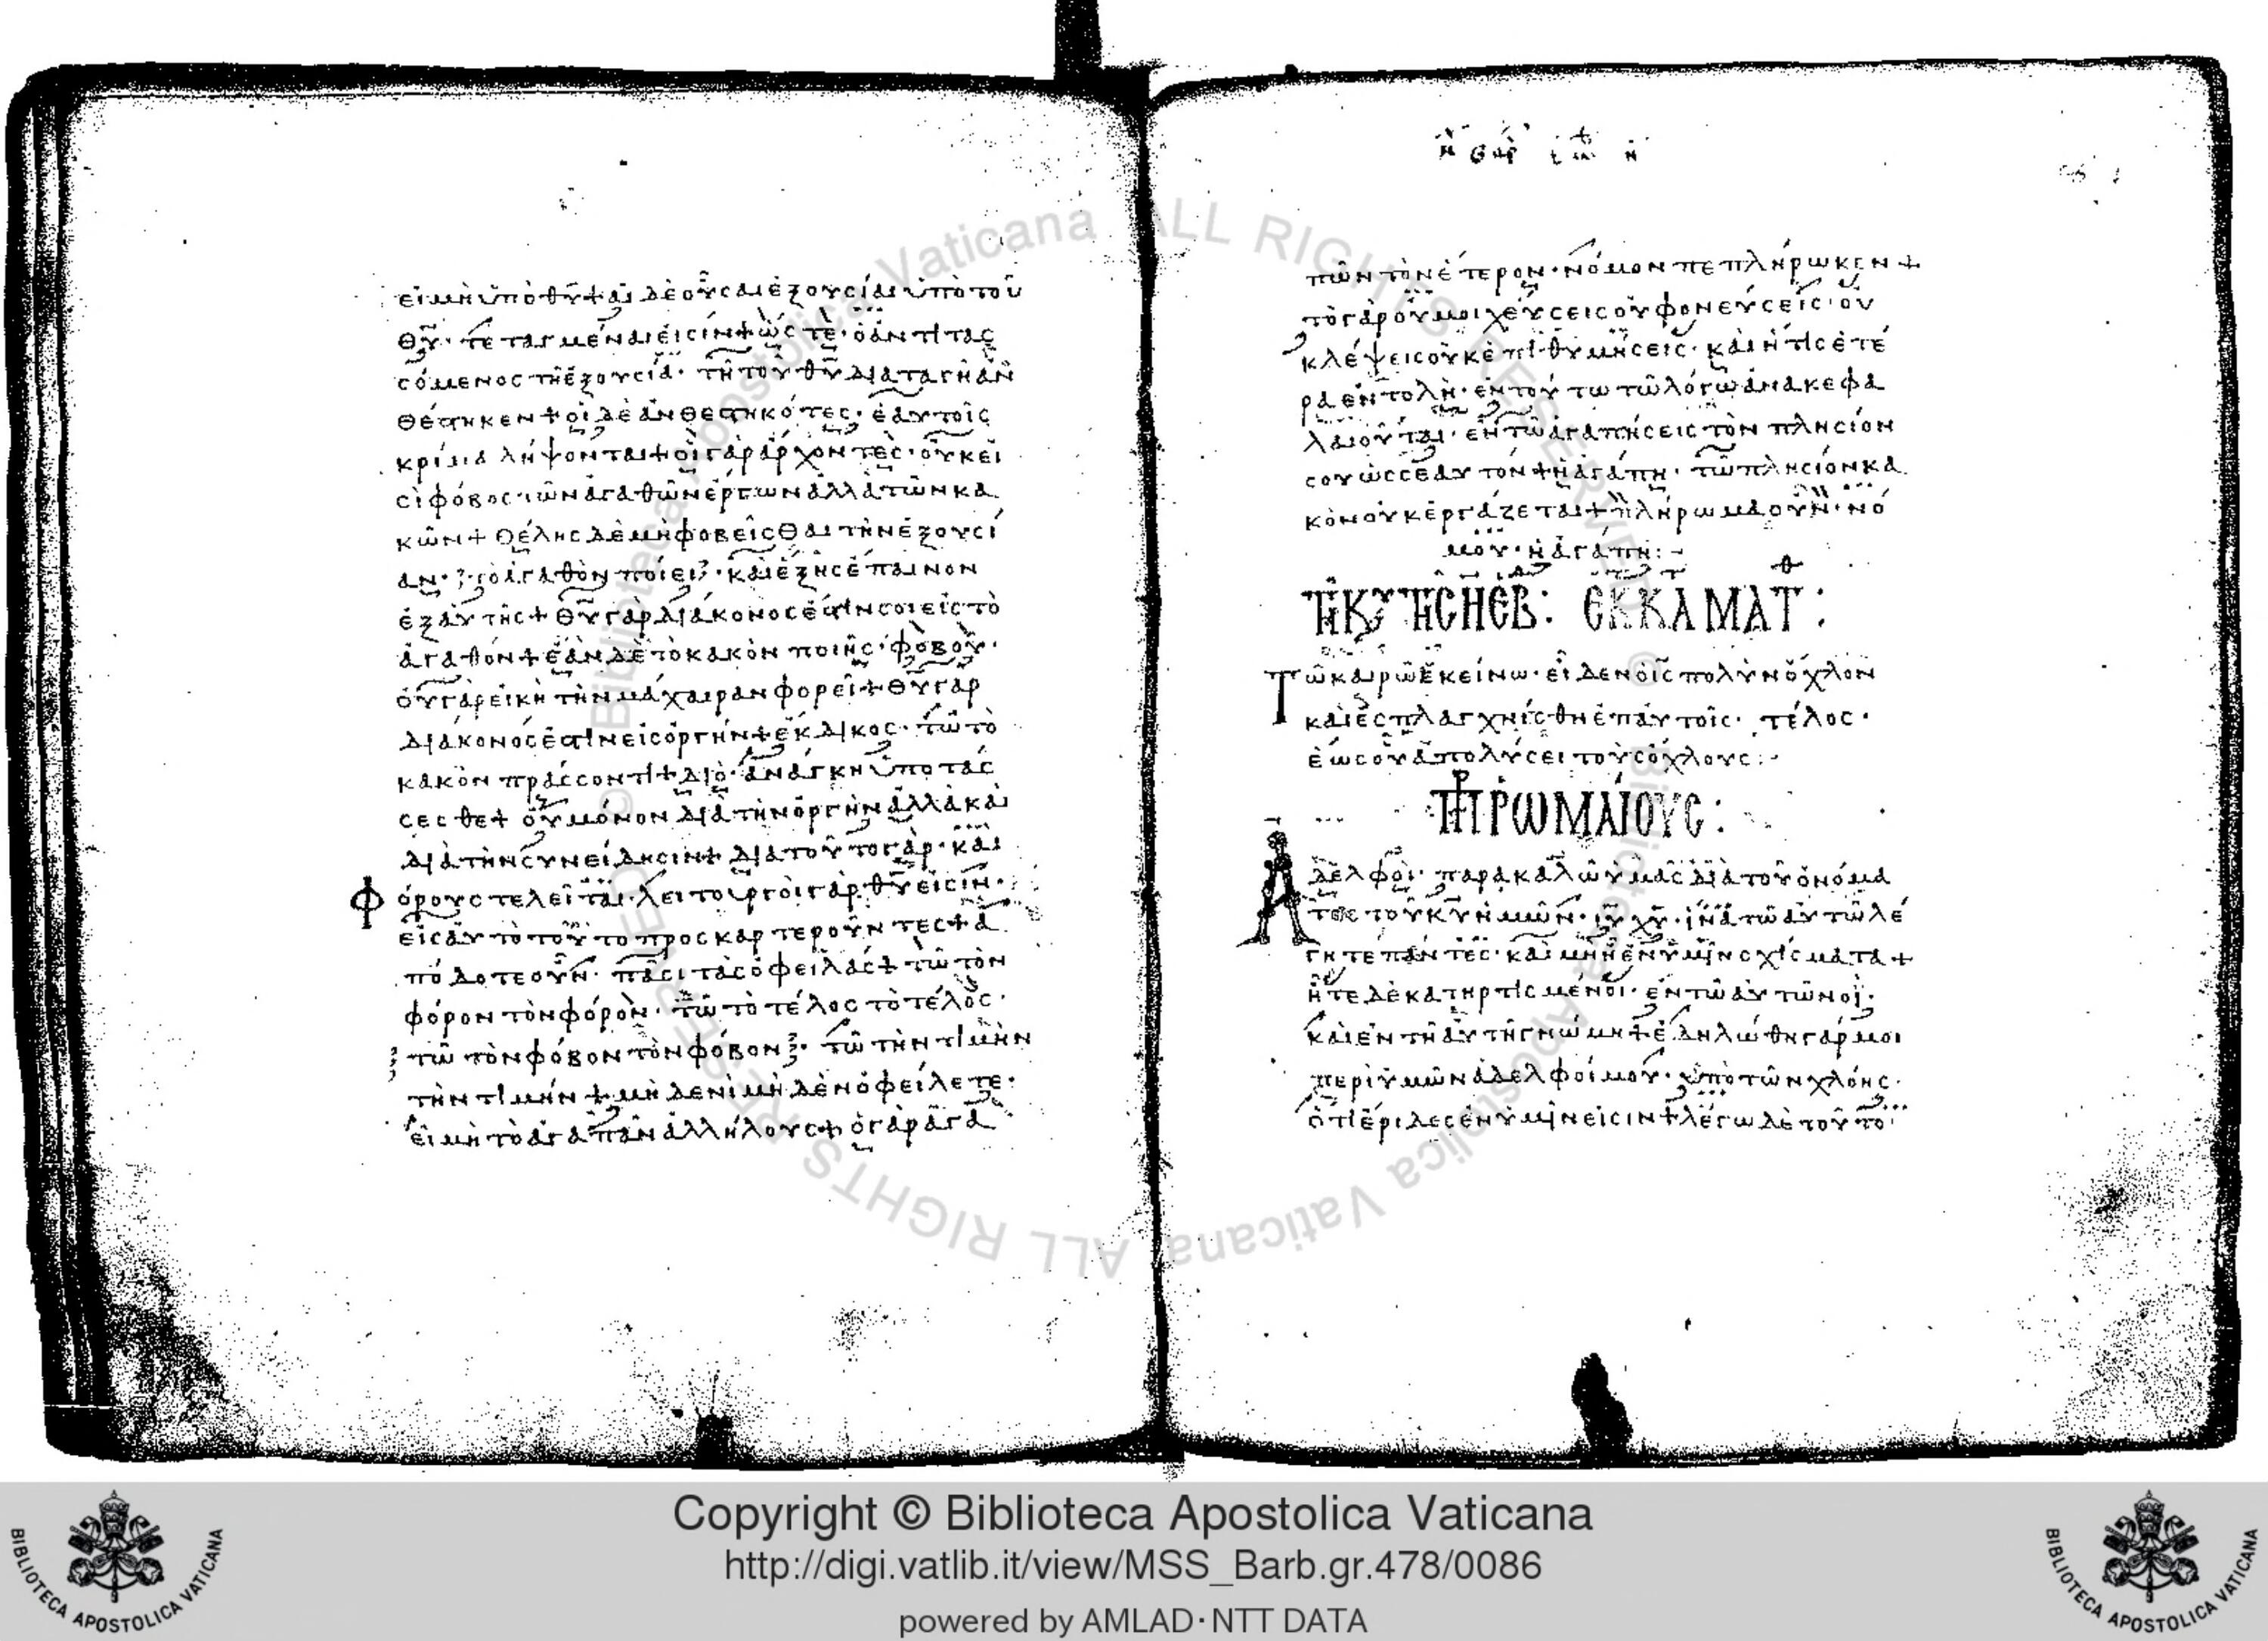 εἰ μὴ ὑπὸ θ̅υ̅ + αἱ δὲ οὖσαι ἐξουσίαι ὑπὸ τοῦ
θ̅υ̅ · τεταγμέναι εἰσίν + ὥστε · ὁ ἀντιτας
σόμενος τῆ ἐξουσία · τῆ τοῦ θ̅υ̅ διαταγῆ ἀν
θέστηκεν + οἱ δὲ ἀνθεστηκότες · ἑαυτοῖς
κρίμα λήψονται + οἱ γὰρ ἄρχοντες · οὐκ εἰ
σὶ φόβος τῶν ἀγαθῶν ἔργων ἀλλὰ τῶν κα
κῶν + θέλης δὲ μὴ φοβεῖσθαι τὴν ἐξουσί
αν · τὸ ἀγαθὸν ποίει · καὶ ἕξης ἔπαινον
ἐξ αὐτῆς + θ̅υ̅ γὰρ διάκονος ἐστίν σοι εἰς τὸ
ἀγαθόν + ἐὰν δὲ τὸ κακὸν ποιῆς · φοβοῦ ·
οὐ γὰρ εἰκῆ τὴν μάχαιραν φορεῖ + θ̅υ̅ γὰρ
διάκονός ἐστιν εἰς ὀργήν + ἔκδικος · τῶ τὸ
κακὸν πράσσοντι + διὸ · ἀνάγκη ὑποτάσ
σεσθε + οὐ μόνον διὰ τὴν ὀργὴν ἀλλὰ καὶ
διὰ τὴν συνείδησιν + διὰ τοῦτο γὰρ · καὶ
φόρους τελεῖται · λειτουργοὶ γὰρ θ̅υ̅ εἰσίν ·
εἰς αὐτὸ τοῦτο προσκαρτεροῦντες + ἀ
πόδοτε οὖν · πᾶσι τὰς ὀφειλάς + τῶ τὸν
φόρον τὸν φόρον · τῶ τὸ τέλος τὸ τέλος ·
τῶ τὸν φόβον τὸν φόβον · τῶ τὴν τιμὴν
τὴν τιμήν + μηδενὶ μηδὲν ὀφείλετε ·
εἰ μὴ τὸ ἀγαπᾶν ἀλλήλους + ὁ γὰρ ἀγα
πῶν τὸν ἕτερον · νόμον πεπλήρωκεν +
τὸ γὰρ οὐ μοιχεύσεις οὐ φονεύσεις · οὐ
κλέψεις οὐκ ἐπιθυμήσεις · καὶ ἥτις ἑτέ
ρα ἐντολὴ · ἐν τούτω τῶ λόγω ἀνακεφα
λαιοῦται · ἐν τῶ ἀγαπήσεις τὸν πλησίον
σου ὡς σεαυτόν + ἡ ἀγάπη · τῶ πλησίον κα
κὸν οὐκ ἐργάζεται + πλήρωμα οὖν · νό
μου · ἡ ἀγάπη :-
Τῆ κυ τῆς η εβ : εκ κ μ ατ :
Τῶ καιρῶ ἐκείνω · εἶδεν ὁ ι̅ς̅ πολὺν ὄχλον
καὶ ἐσπλαγχνίσθη ἐπ αὐτοῖς · τέλος ·
ἕως οὗ ἀπολύσει τοὺς ὄχλους :-
Πρ ῥωμαίους :
Ἀδελφοὶ · παρακαλῶ ὑμᾶς διὰ τοῦ ὀνόμα
τος τοῦ κ̅υ̅ ἡμῶν · ι̅υ̅ χ̅υ̅ · ἵνα τῶ αὐτῶ λέ
γητε πάντες · καὶ μὴ ἦ ἐν ὑμῖν σχίσματα +
ἦτε δὲ κατηρτισμένοι · ἐν τῶ αὐτῶ νοῒ ·
καὶ ἐν τῆ αὐτῆ γνώμη + ἐδηλώθη γάρ μοι
περὶ ὑμῶν ἀδελφοί μου · ὑπὸ τῶν χλόης ·
ὅτι ἔριδες ἐν ὑμῖν εἰσιν + λέγω δὲ τοῦτο
Copyright © Biblioteca Apostolica Vaticana
http://digi.vatlib.it/view/MSS_Barb.gr.478/0086
powered by AMLAD·NTT DATA
BIBLIOTECA APOSTOLICA VATICANA
BIBLIOTECA APOSTOLICA VATICANA
© Biblioteca Apostolica Vaticana ALL RIGHTS RESERVED
© Biblioteca Apostolica Vaticana ALL RIGHTS RESERVED